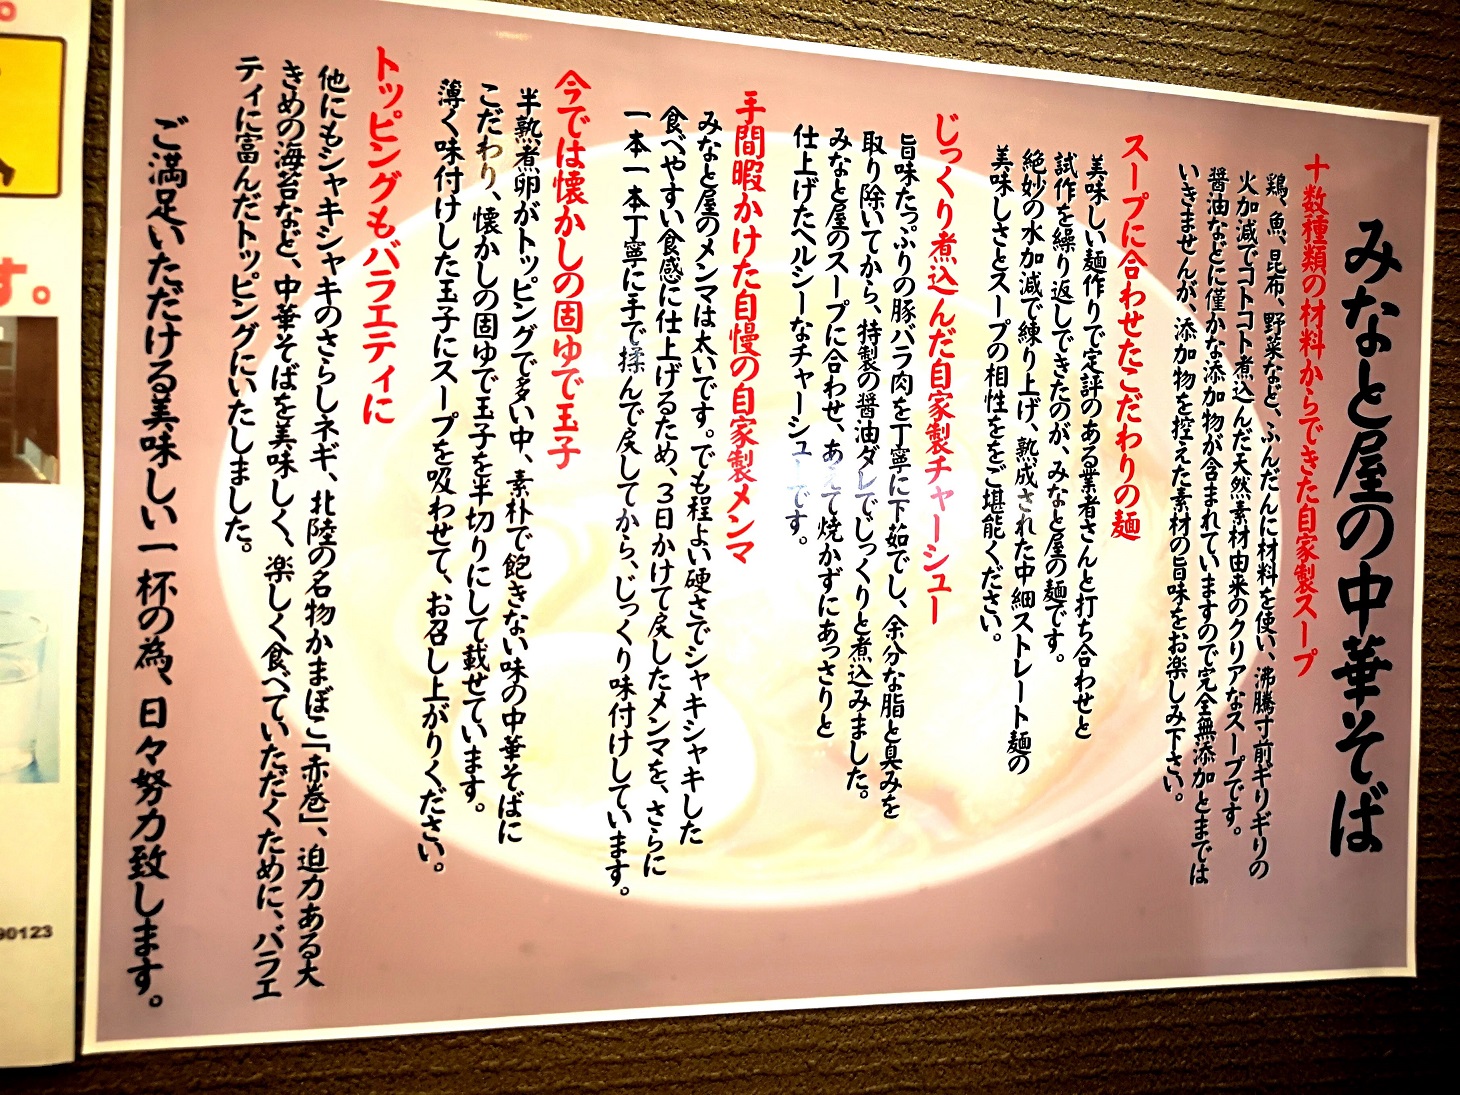 みなと屋の中華そば
十数種類の材料からできた自家製スープ
鶏、魚、昆布、野菜など、ふんだんに材料を使い、沸騰寸前ギリギリの
火加減でコトコト煮込んだ天然素材由来のクリアなスープです。
醤油などに僅かな添加物が含まれていますので完全無添加とまでは
いきませんが、添加物を控えた素材の旨味をお楽しみ下さい。
スープに合わせたこだわりの麺
美味しい麺作りで定評のある業者さんと打ち合わせと
試作を繰り返しできたのが、みなと屋の麺です。
絶妙の水加減で練り上げ、熟成された中細ストレート麺の
美味しさとスープの相性をご堪能ください。
じっくり煮込んだ自家製チャーシュー
旨味たっぷりの豚バラ肉を丁寧に下茹でし、余分な脂と臭みを
取り除いてから、特製の醤油ダレでじっくりと煮込みました。
みなと屋のスープに合わせ、あえて焼かずにあっさりと
仕上げたヘルシーなチャーシューです。
手間暇かけた自慢の自家製メンマ
みなと屋のメンマは太いです。でも程よい硬さでシャキシャキした
食べやすい食感に仕上げるため、3日かけて戻したメンマを、さらに
一本一本丁寧に手で揉んで戻してから、じっくり味付けしています。
今では懐かしの固ゆで玉子
半熟煮卵がトッピングで多い中、素朴で飽きない味の中華そばに
こだわり、懐かしの固ゆで玉子を半切りにして載せています。
薄く味付けした玉子にスープを吸わせて、お召し上がりください。
トッピングもバラエティに
他にもシャキシャキのさらしネギ、北陸の名物かまぼこ「赤巻」、迫力ある大
きめの海苔など、中華そばを美味しく、楽しく食べていただくために、バラエ
ティに富んだトッピングにいたしました。
ご満足いただける美味しい一杯の為、日々努力致します。
す。
90123